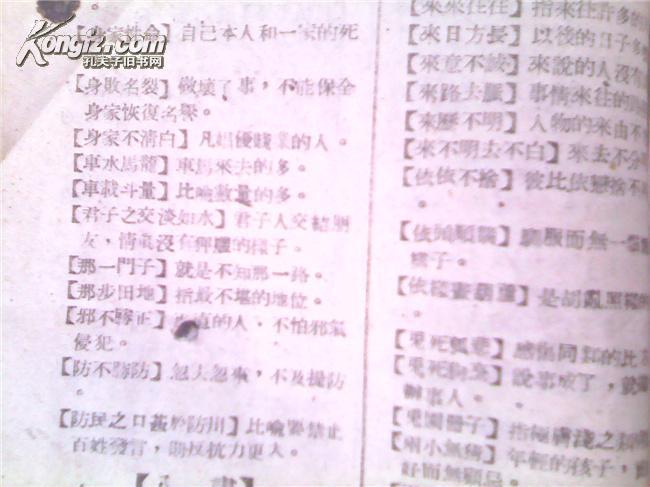 Kongfz.com
孔夫子旧书网
【身家性命】自己本人和一家的死
【身敗名裂】做壞了事,不能保全
身家恢復名譽。
【身家不清白】凡娼優賤業的人。
【車水馬龍】車馬來去的多。
【車載斗量】比喻數量的多。
【君子之交淡如水】君子人交結朋
友,情眞沒有
的樣子。
【那一門子】就是不知那一路。
【那步田地】指最不堪的地位。
【邪不勝正】
直的人,不怕邪氣
侵犯。
【防不勝防】忽
不及提防
。
【防民之口甚於防川】比喻要禁止
百姓發言,
反抗力更大。
【來來往往】指來往許多的
【來日方長】以後的日子多
【來意不誠】來說的人沒有
【來路去脈】事情來往的
【來歷不明】人物的來由不
【來不明去不白】來去不分
【依依不捨】彼此依戀捨不
。
【依頭順腦】
服而無一
樣子。
【依樣畫葫蘆】是胡亂照樣的
【兎死狐悲】感傷同類的比
【兎死狗烹】說事成了,就
辦事人。
【兎園冊子】指極膚淺之
【兩小無猜】年輕的孩子,
好而無顧忌。